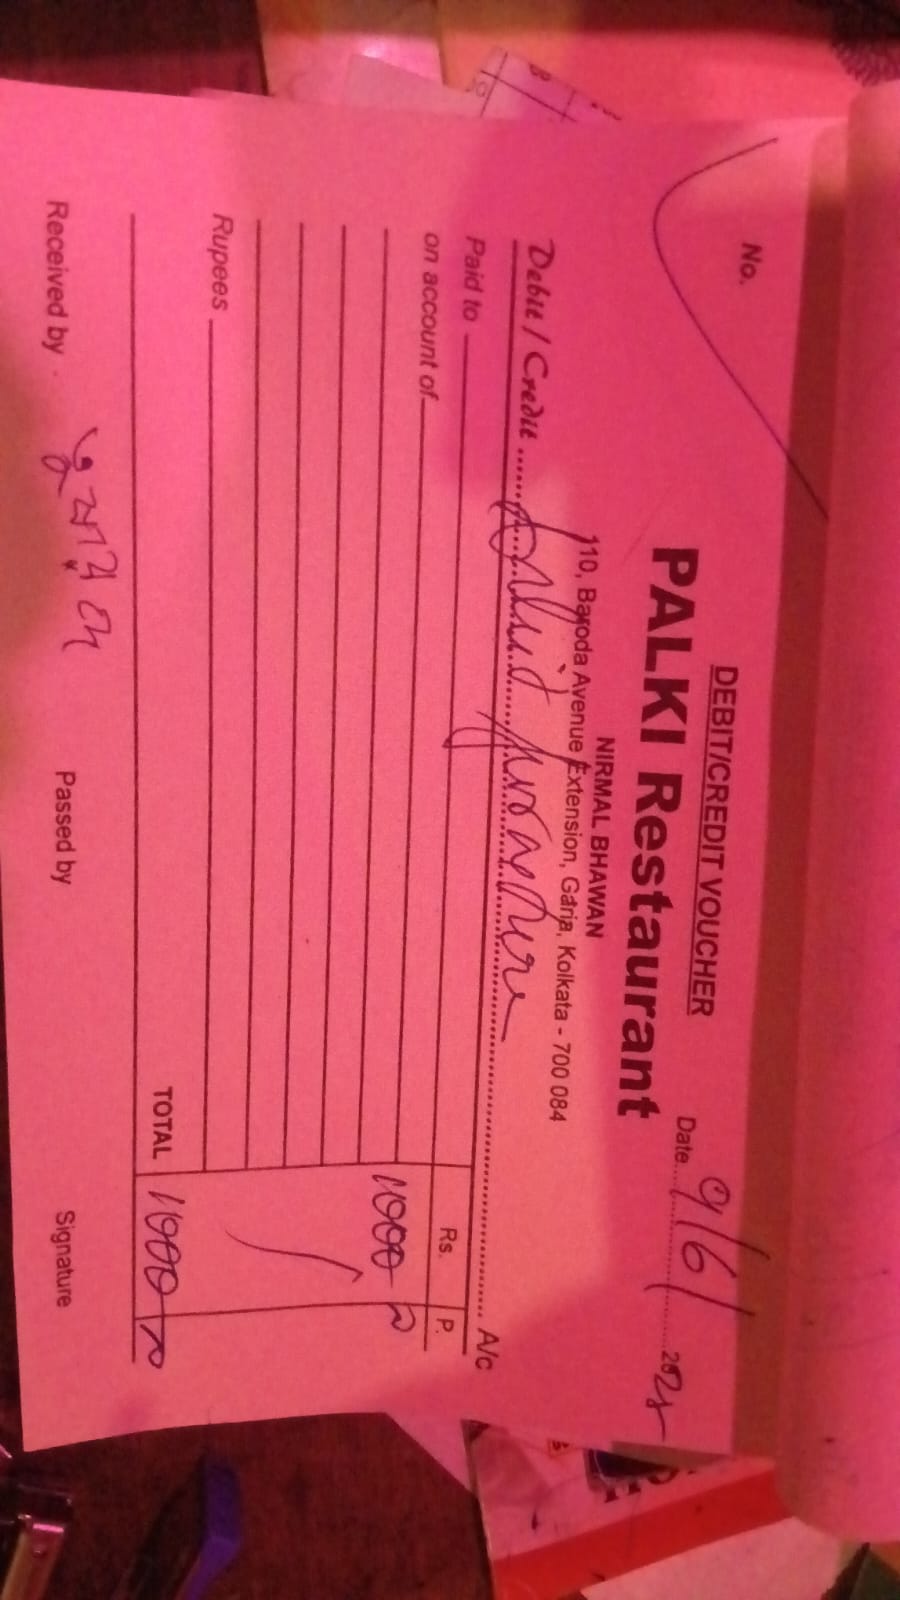 No.
DEBIT/CREDIT VOUCHER
PALKI Restaurant
Date 9/6/2025
NIRMAL BHAWAN
110, Baroda Avenue Extension, Garia, Kolkata - 700 084
Debit / Credit ........ A/c
Paid to
on account of
Rs. P.
11000
Rupees
TOTAL 11000
Received by Passed by Signature